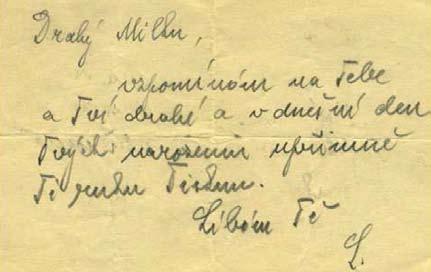 Drahý Milku,
vzpomínám na Tebe
a Tvé drahé a v dnešní den
Tvých narozenin upřimně
Ti ruku Tisknu.
Líbám Tě
L.